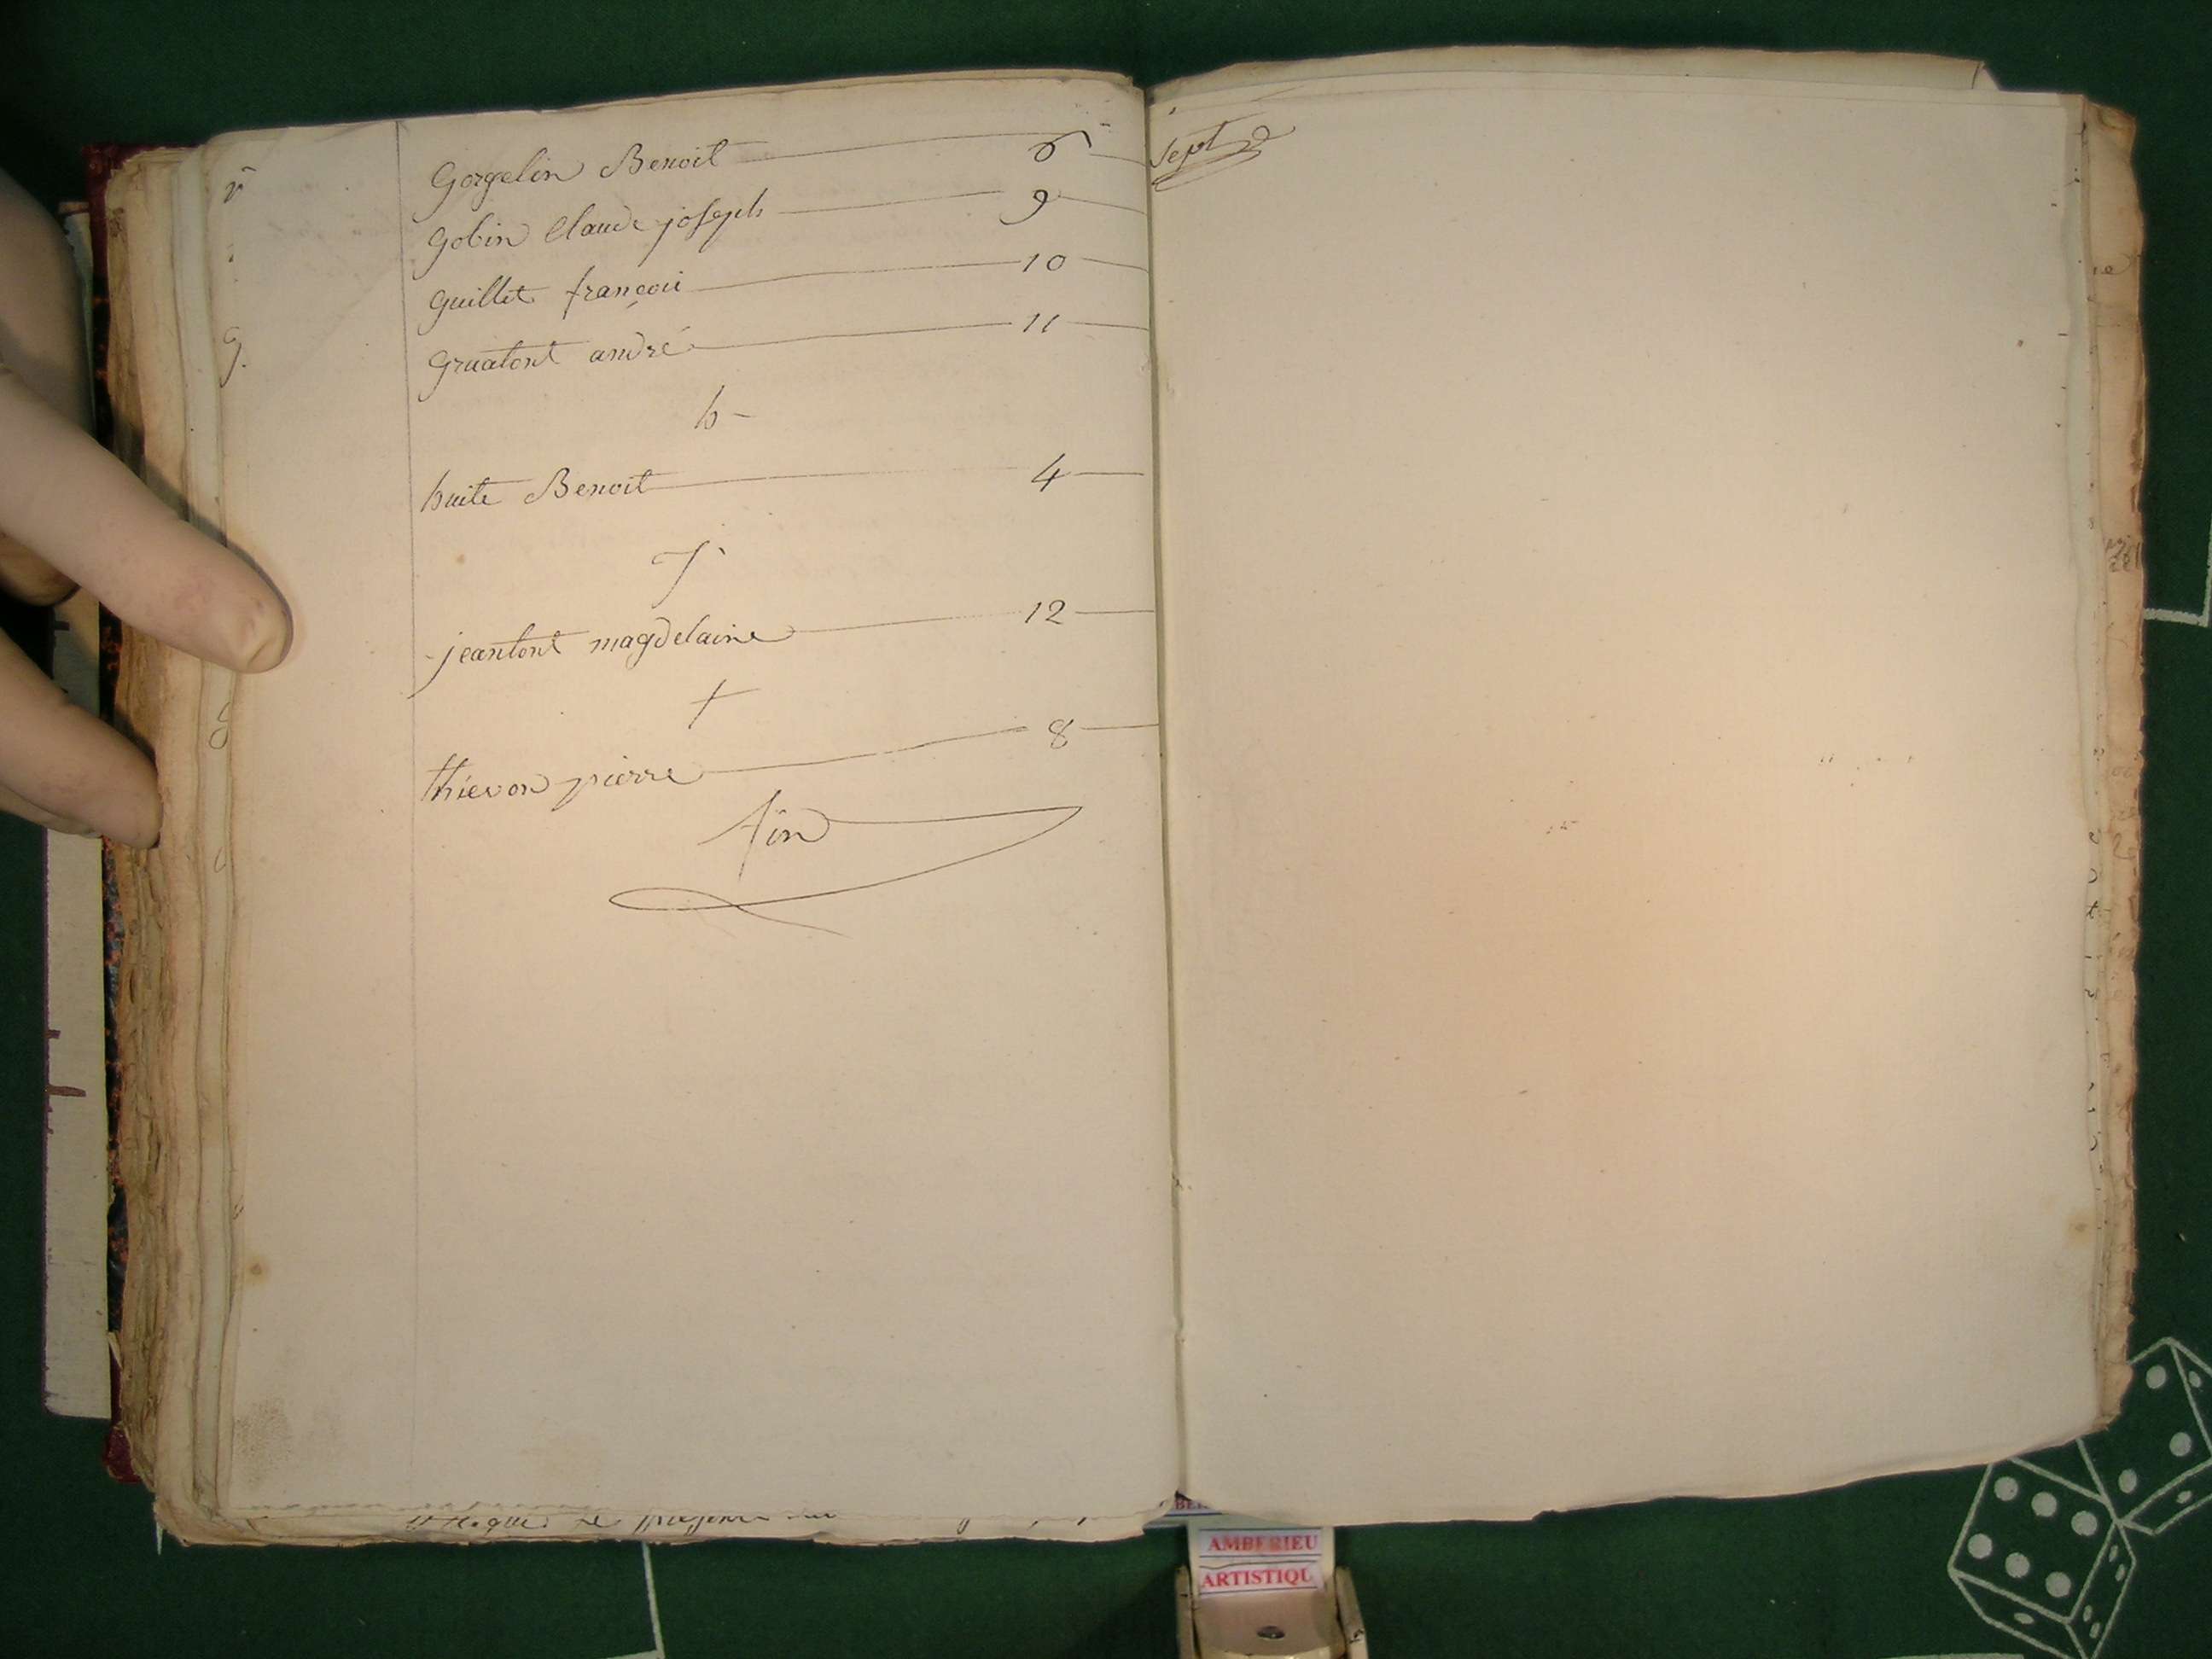 Gorgelin Benoit 6
Gobin Claude joseph 9
Guillet françois 10
Gruatont andré 11
h
huite Benoit 4
J
jeantont magdelaine 12
t
thievon pierre 8
fin
Sept
AMBERIEU
ARTISTIQU